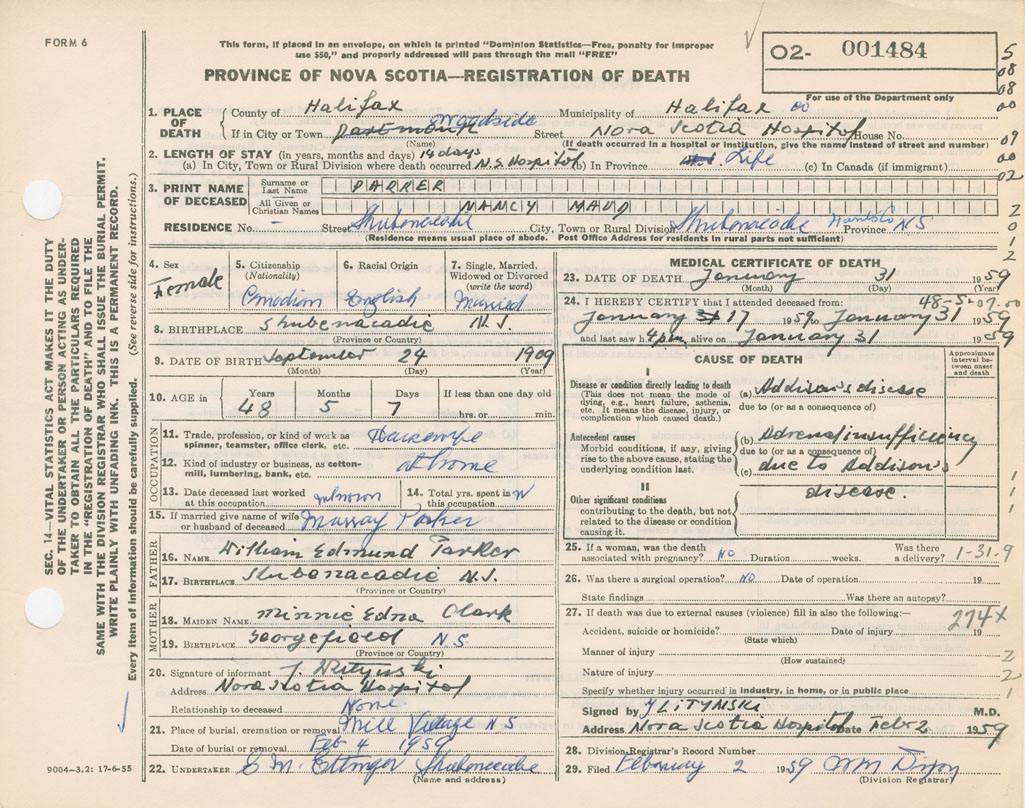 FORM 6
This form, if placed in an envelope, on which is printed "Dominion Statistics—Free, penalty for improper
use $50," and properly addressed will pass through the mail "FREE"
PROVINCE OF NOVA SCOTIA—REGISTRATION OF DEATH
02- 001484
For use of the Department only
5
08
08
00
09
00
02
2
0
1
2
SEC. 14—VITAL STATISTICS ACT MAKES IT THE DUTY
OF THE UNDERTAKER OR PERSON ACTING AS UNDER-
TAKER TO OBTAIN ALL THE PARTICULARS REQUIRED
IN THE "REGISTRATION OF DEATH" AND TO FILE THE
SAME WITH THE DIVISION REGISTRAR WHO SHALL ISSUE THE BURIAL PERMIT.
WRITE PLAINLY WITH UNFADING INK. THIS IS A PERMANENT RECORD.
Every item of information should be carefully supplied. (See reverse side for instructions.)
1. PLACE OF DEATH
County of Halifax Municipality of Halifax 00
If in City or Town Dartmouth Woodside Street Nova Scotia Hospital House No.
(Name) (If death occurred in a hospital or institution, give the name instead of street and number)
2. LENGTH OF STAY (in years, months and days) 14 days
(a) In City, Town or Rural Division where death occurred N.S. Hospital (b) In Province Life (c) In Canada (if immigrant)
3. PRINT NAME OF DECEASED
Surname or Last Name PARKER
All Given or Christian Names NANCY MAUD
RESIDENCE No. - Street Shubenacadie City, Town or Rural Division Shubenacadie Hants Co Province N S
(Residence means usual place of abode. Post Office Address for residents in rural parts not sufficient)
4. Sex Female
5. Citizenship (Nationality) Canadian
6. Racial Origin English
7. Single, Married, Widowed or Divorced (write the word) Married
8. BIRTHPLACE Shubenacadie N.S.
(Province or Country)
9. DATE OF BIRTH September 24 1909
(Month) (Day) (Year)
10. AGE in Years 48 Months 5 Days 7 If less than one day old hrs. or min.
OCCUPATION
11. Trade, profession, or kind of work as spinner, teamster, office clerk, etc. Housewife
12. Kind of industry or business, as cotton-mill, lumbering, bank, etc. at home
13. Date deceased last worked at this occupation unknown
14. Total yrs. spent in this occupation
15. If married give name of wife or husband of deceased Murray Parker
FATHER
16. NAME William Edmund Parker
17. BIRTHPLACE Shubenacadie N.S.
(Province or Country)
MOTHER
18. MAIDEN NAME Minnie Edna Clark
19. BIRTHPLACE Georgefield N.S.
(Province or Country)
20. Signature of informant
Address Nova Scotia Hospital
Relationship to deceased None
21. Place of burial, cremation or removal Mill Village N S
Date of burial or removal Feb 4 1959
22. UNDERTAKER E M Ettinger Shubenacadie
(Name and address)
9004-3.2: 17-6-55
MEDICAL CERTIFICATE OF DEATH
23. DATE OF DEATH January 31 1959
(Month) (Day) (Year)
24. I HEREBY CERTIFY that I attended deceased from: 48-5-07.00
January 17 1959 to January 31 1959
and last saw h. 4 pm alive on January 31 1959
CAUSE OF DEATH
Approximate interval between onset and death
I
Disease or condition directly leading to death
(This does not mean the mode of dying, e.g., heart failure, asthenia, etc. It means the disease, injury, or complication which caused death.)
(a) Addison's disease
due to (or as a consequence of)
Antecedent causes
Morbid conditions, if any, giving rise to the above cause, stating the underlying condition last.
(b) Adrenal insufficiency
due to (or as a consequence of)
(c) due to Addison's
disease.
II
Other significant conditions
contributing to the death, but not related to the disease or condition causing it.
1
1
1
25. If a woman, was the death associated with pregnancy? NO Duration weeks. Was there a delivery? 1-31.9
26. Was there a surgical operation? NO Date of operation 19
State findings Was there an autopsy?
27. If death was due to external causes (violence) fill in also the following:— 274X
Accident, suicide or homicide? Date of injury 19
(State which)
Manner of injury 2
(How sustained)
Nature of injury 2
Specify whether injury occurred in industry, in home, or in public place 1
Signed by J LITYNSKI M.D.
Address Nova Scotia Hospital Date Feb 2 1959
28. Division Registrar's Record Number
29. Filed February 2 1959 Wm Dixon
(Division Registrar)